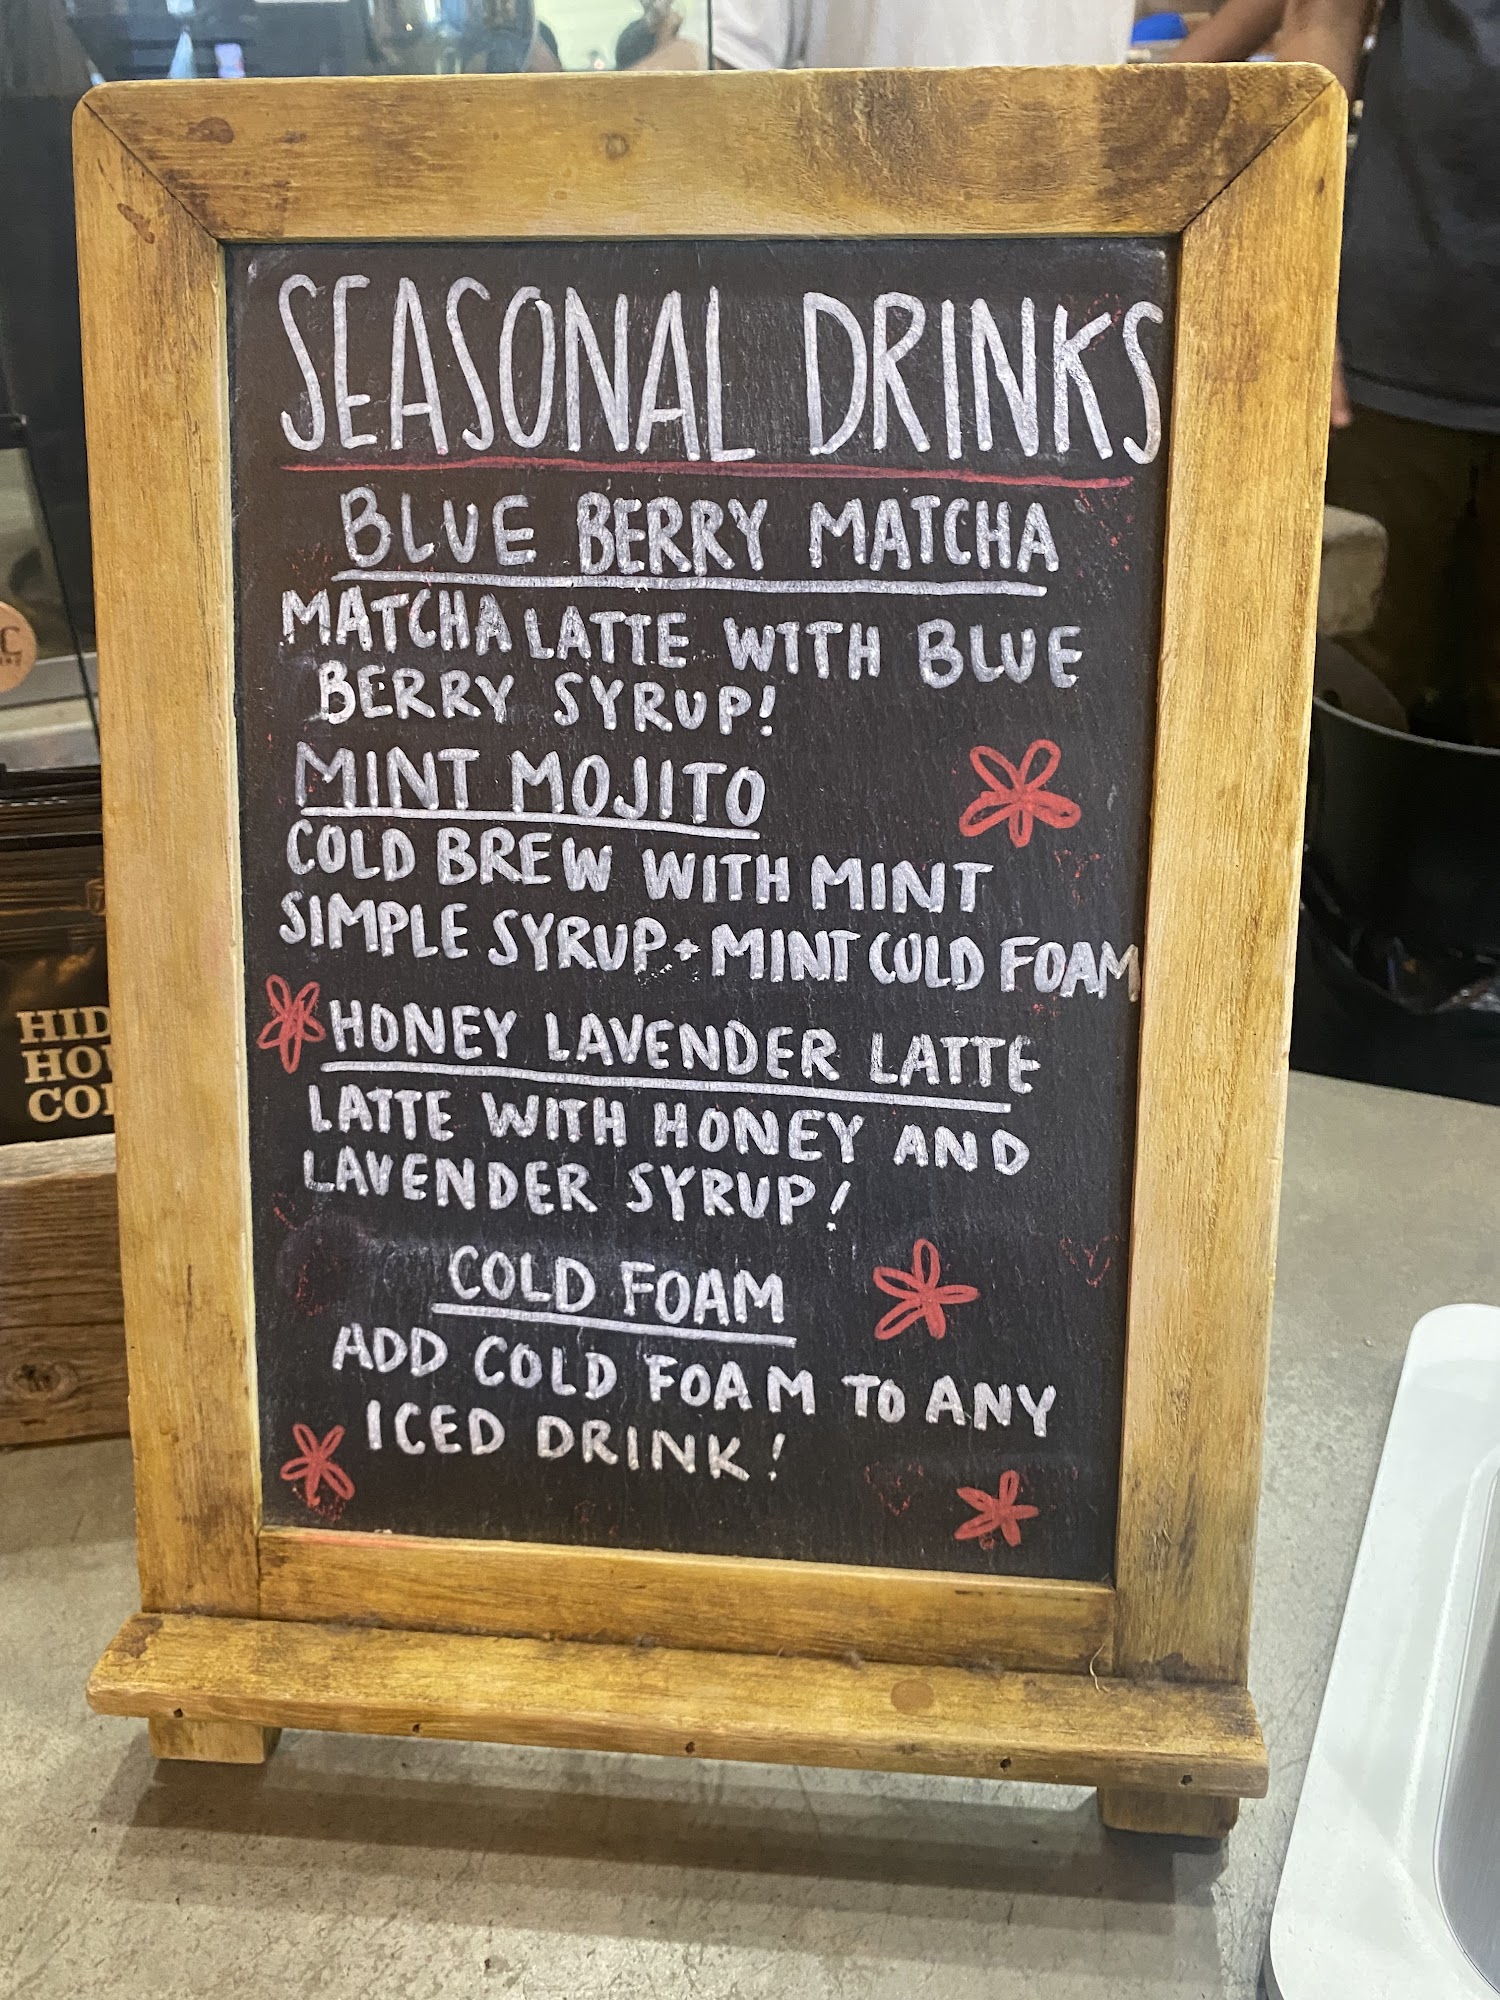 SEASONAL DRINKS
BLUE BERRY MATCHA
MATCHA LATTE WITH BLUE
BERRY SYRUP!
MINT MOJITO
COLD BREW WITH MINT
SIMPLE SYRUP + MINT COLD FOAM
HONEY LAVENDER LATTE
LATTE WITH HONEY AND
LAVENDER SYRUP!
COLD FOAM
ADD COLD FOAM TO ANY
ICED DRINK!
HID
HO
CO